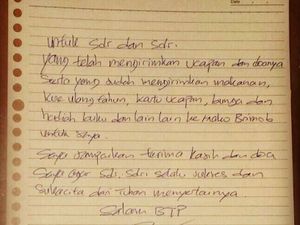 Untuk Sdr dan Sdri.
yang telah mengirimkan ucapan dan doanya
Serta yang sudah mengirimkan makanan,
kue ulang tahun, kartu ucapan, bunga dan
hadiah buku dan lain lain ke Mako Brimob
untuk saya.
Saya sampaikan terima kasih dan doa
Saya agar Sdr. Sdri selalu sukses dan
Sukacita dari Tuhan menyertainya.
Salam BTP